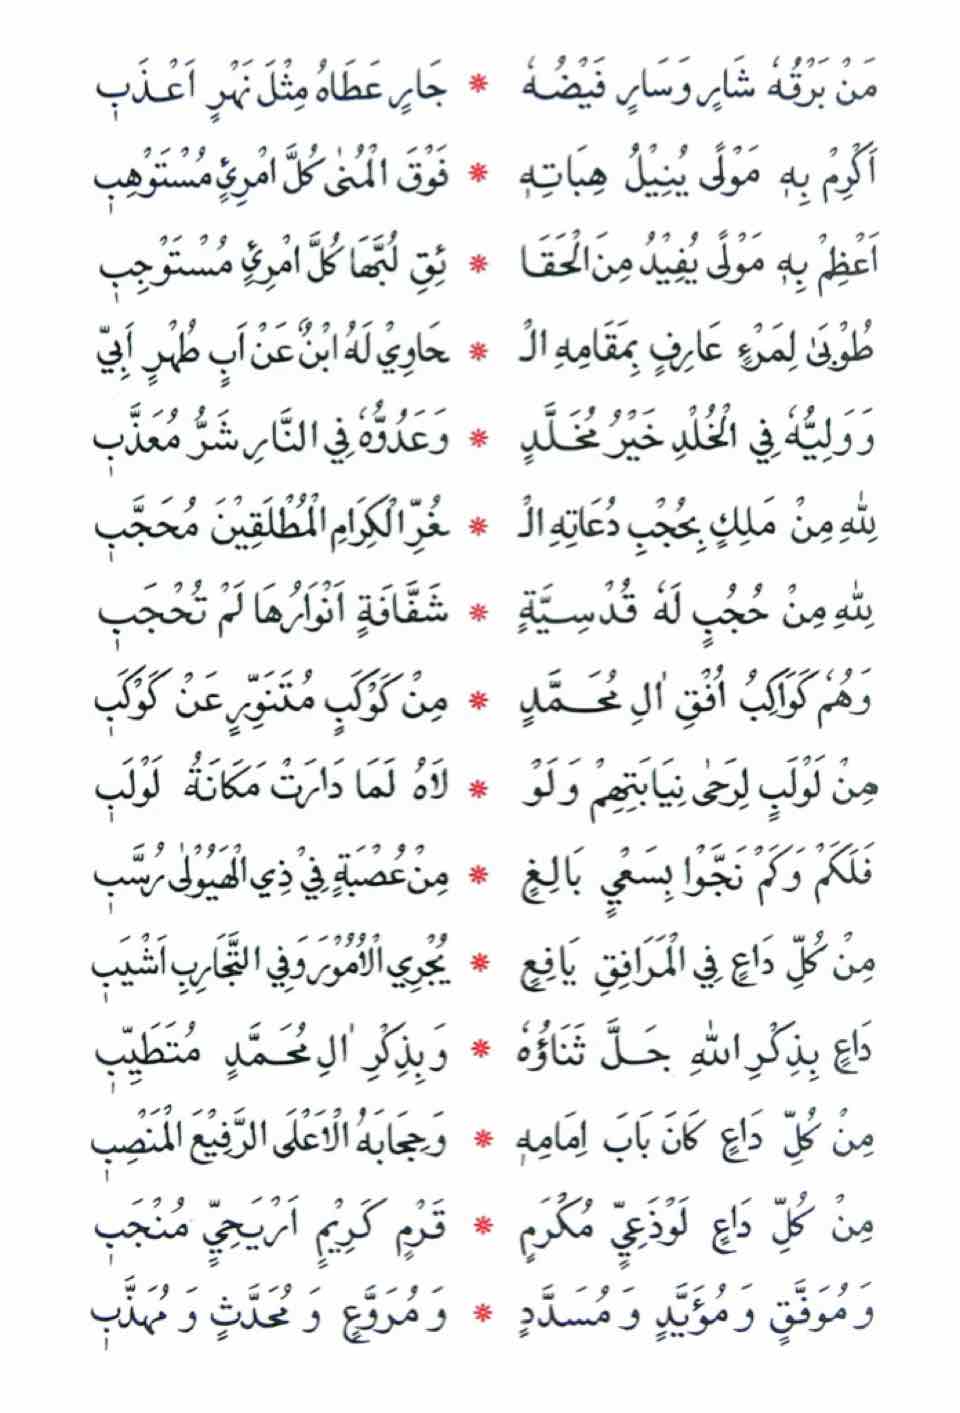 مَنْ بَرْقُهٗ شَارٍ وَسَارٍ فَيْضُهٗ * جَارٍ عَطَاهُ مِثْلَ نَهْرٍ اَعْذَبٖ
اَكْرِمْ بِهٖ مَوْلًى يُنِيْلُ هِبَاتِهٖ * فَوْقَ الْمُنٰى كُلَّ امْرِئٍ مُسْتَوْهِبٖ
اَعْظِمْ بِهٖ مَوْلًى يُفِيْدُ مِنَ الْحَقَا * ئِقِ لُبَّهَا كُلَّ امْرِئٍ مُسْتَوْجِبٖ
طُوْبٰى لِمَرْءٍ عَارِفٍ بِمَقَامِهِ الْـ * ـحَاوِيْ لَهُ ابْنٌ عَنْ اَبٍ طُهْرٍ اَبِيّ
وَ وَلِيُّهٗ فِي الْخُلْدِ خَيْرُ مُخَلَّدٍ * وَعَدُوُّهٗ فِي النَّارِ شَرُّ مُعَذَّبٖ
لِلّٰهِ مِنْ مَلِكٍ بِحُجْبِ دُعَاتِهِ الْـ * ـغُرِّ الْكِرَامِ الْمُطْلَقِيْنَ مُحَجَّبٖ
لِلّٰهِ مِنْ حُجُبٍ لَهٗ قُدْسِيَّةٍ * شَفَّافَةٍ اَنْوَارُهَا لَمْ تُحْجَبٖ
وَهُمْ كَوَاكِبُ اُفْقِ اٰلِ مُحَمَّدٍ * مِنْ كَوْكَبٍ مُتَنَوِّرٍ عَنْ كَوْكَبٖ
مِنْ لَوْلَبٍ لِرَحٰى نِيَابَتِهِمْ وَ لَوْ * لَاهُ لَمَا دَارَتْ مَكَانَةُ لَوْلَبٖ
فَلَكَمْ وَكَمْ نَجَّوْا بِسَعْيٍ بَالِغٍ * مِنْ عُصْبَةٍ فِيْ ذِي الْهَيُوْلٰى رُسَّبٖ
مِنْ كُلِّ دَاعٍ فِي الْمَرَافِقِ يَافِعٍ * يُجْرِي الْاُمُوْرَ وَفِي التَّجَارِبِ اَشْيَبٖ
دَاعٍ بِذِكْرِ اللّٰهِ جَلَّ ثَنَاؤُهٗ * وَبِذِكْرِ اٰلِ مُحَمَّدٍ مُتَطَيِّبٖ
مِنْ كُلِّ دَاعٍ كَانَ بَابَ اِمَامِهٖ * وَحِجَابَهُ الْاَعْلَى الرَّفِيْعَ الْمَنْصِبٖ
مِنْ كُلِّ دَاعٍ لَوْذَعِيٍّ مُكْرَمٍ * قَرْمٍ كَرِيْمٍ اَرْيَحِيٍّ مُنْجَبٖ
وَ مُوَفَّقٍ وَ مُؤَيَّدٍ وَ مُسَدَّدٍ * وَ مُرَوَّعٍ وَ مُحَدَّثٍ وَ مُهَذَّبٖ